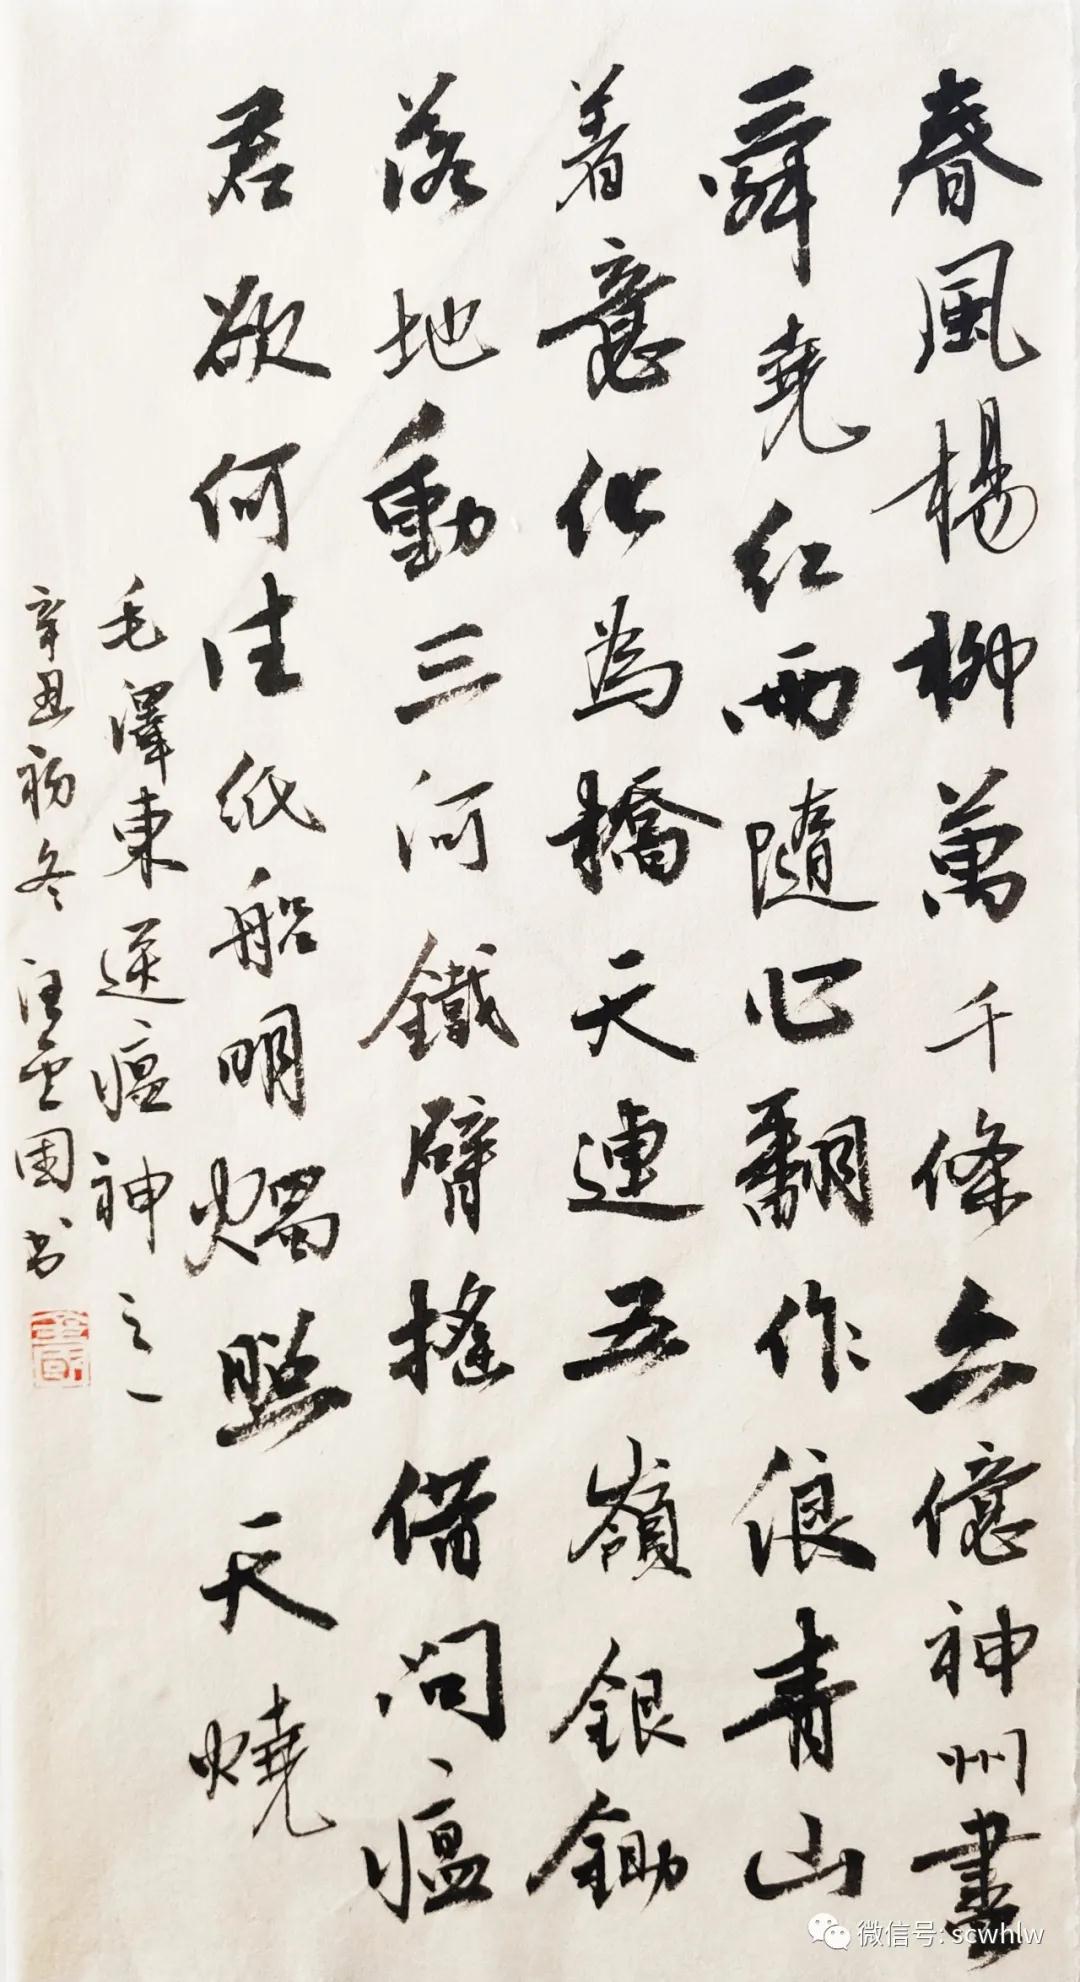 春風楊柳萬千條六億神州盡
舜堯紅雨隨心翻作浪青山
着意化為橋天連五嶺銀鋤
落地動三河鐵臂搖借問瘟
君欲何往紙船明燭照天燒
毛澤東送瘟神之一
辛丑初冬汪雲国书
微信号: scwhlw